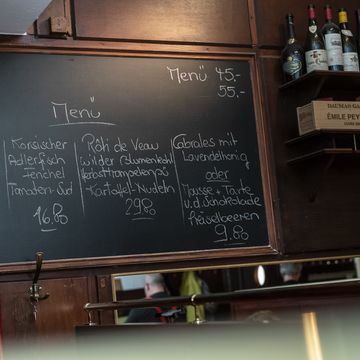 Menü 45,-
55,-
Menü
Korsischer
Adlerfisch
Fenchel
Tomaten-Sud
16.80
Rôti de Veau
wilder Blumenkohl
Herbsttrompeten
Kartoffel-Nudeln
29.80
Cabrales mit
Lavendelhonig
oder
Mousse + Tarte
v.d. Schokolade
Preiselbeeren
9.80
DAUMAS GA
ÉMILE PEY